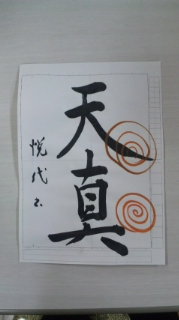 天真
悦代